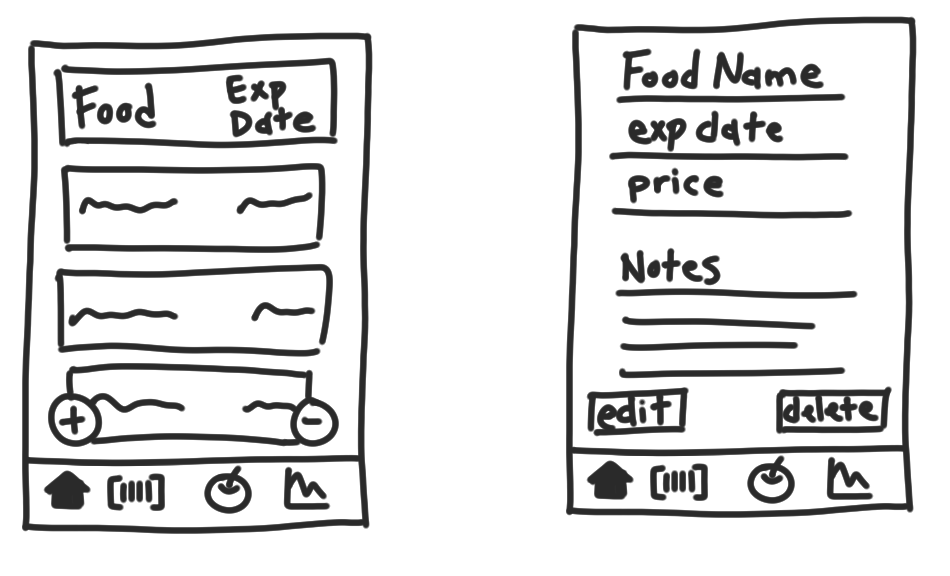 Food
Exp
Date
+
-
Food Name
exp date
price
Notes
edit
delete